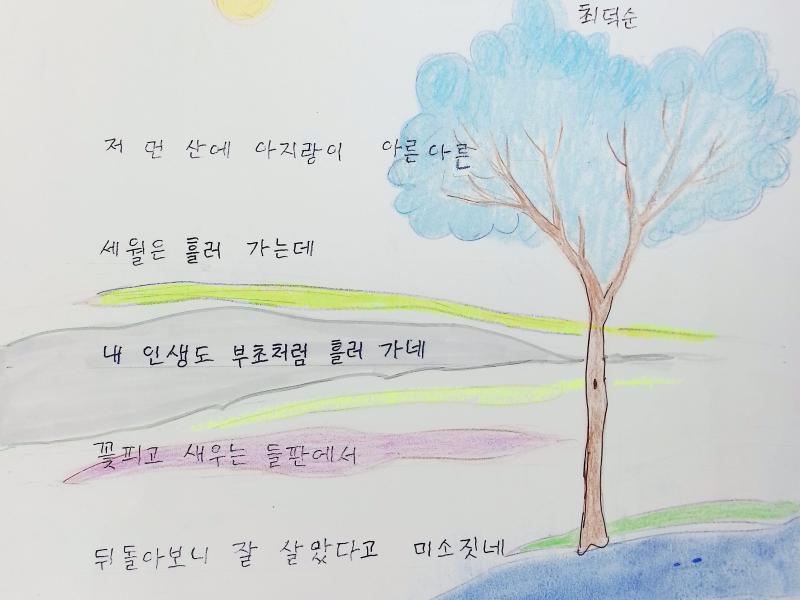 최덕순
저 먼 산에 아지랑이 아른아른
세월은 흘러 가는데
내 인생도 부초처럼 흘러 가네
꽃피고 새우는 들판에서
뒤돌아보니 잘 살았다고 미소짓네